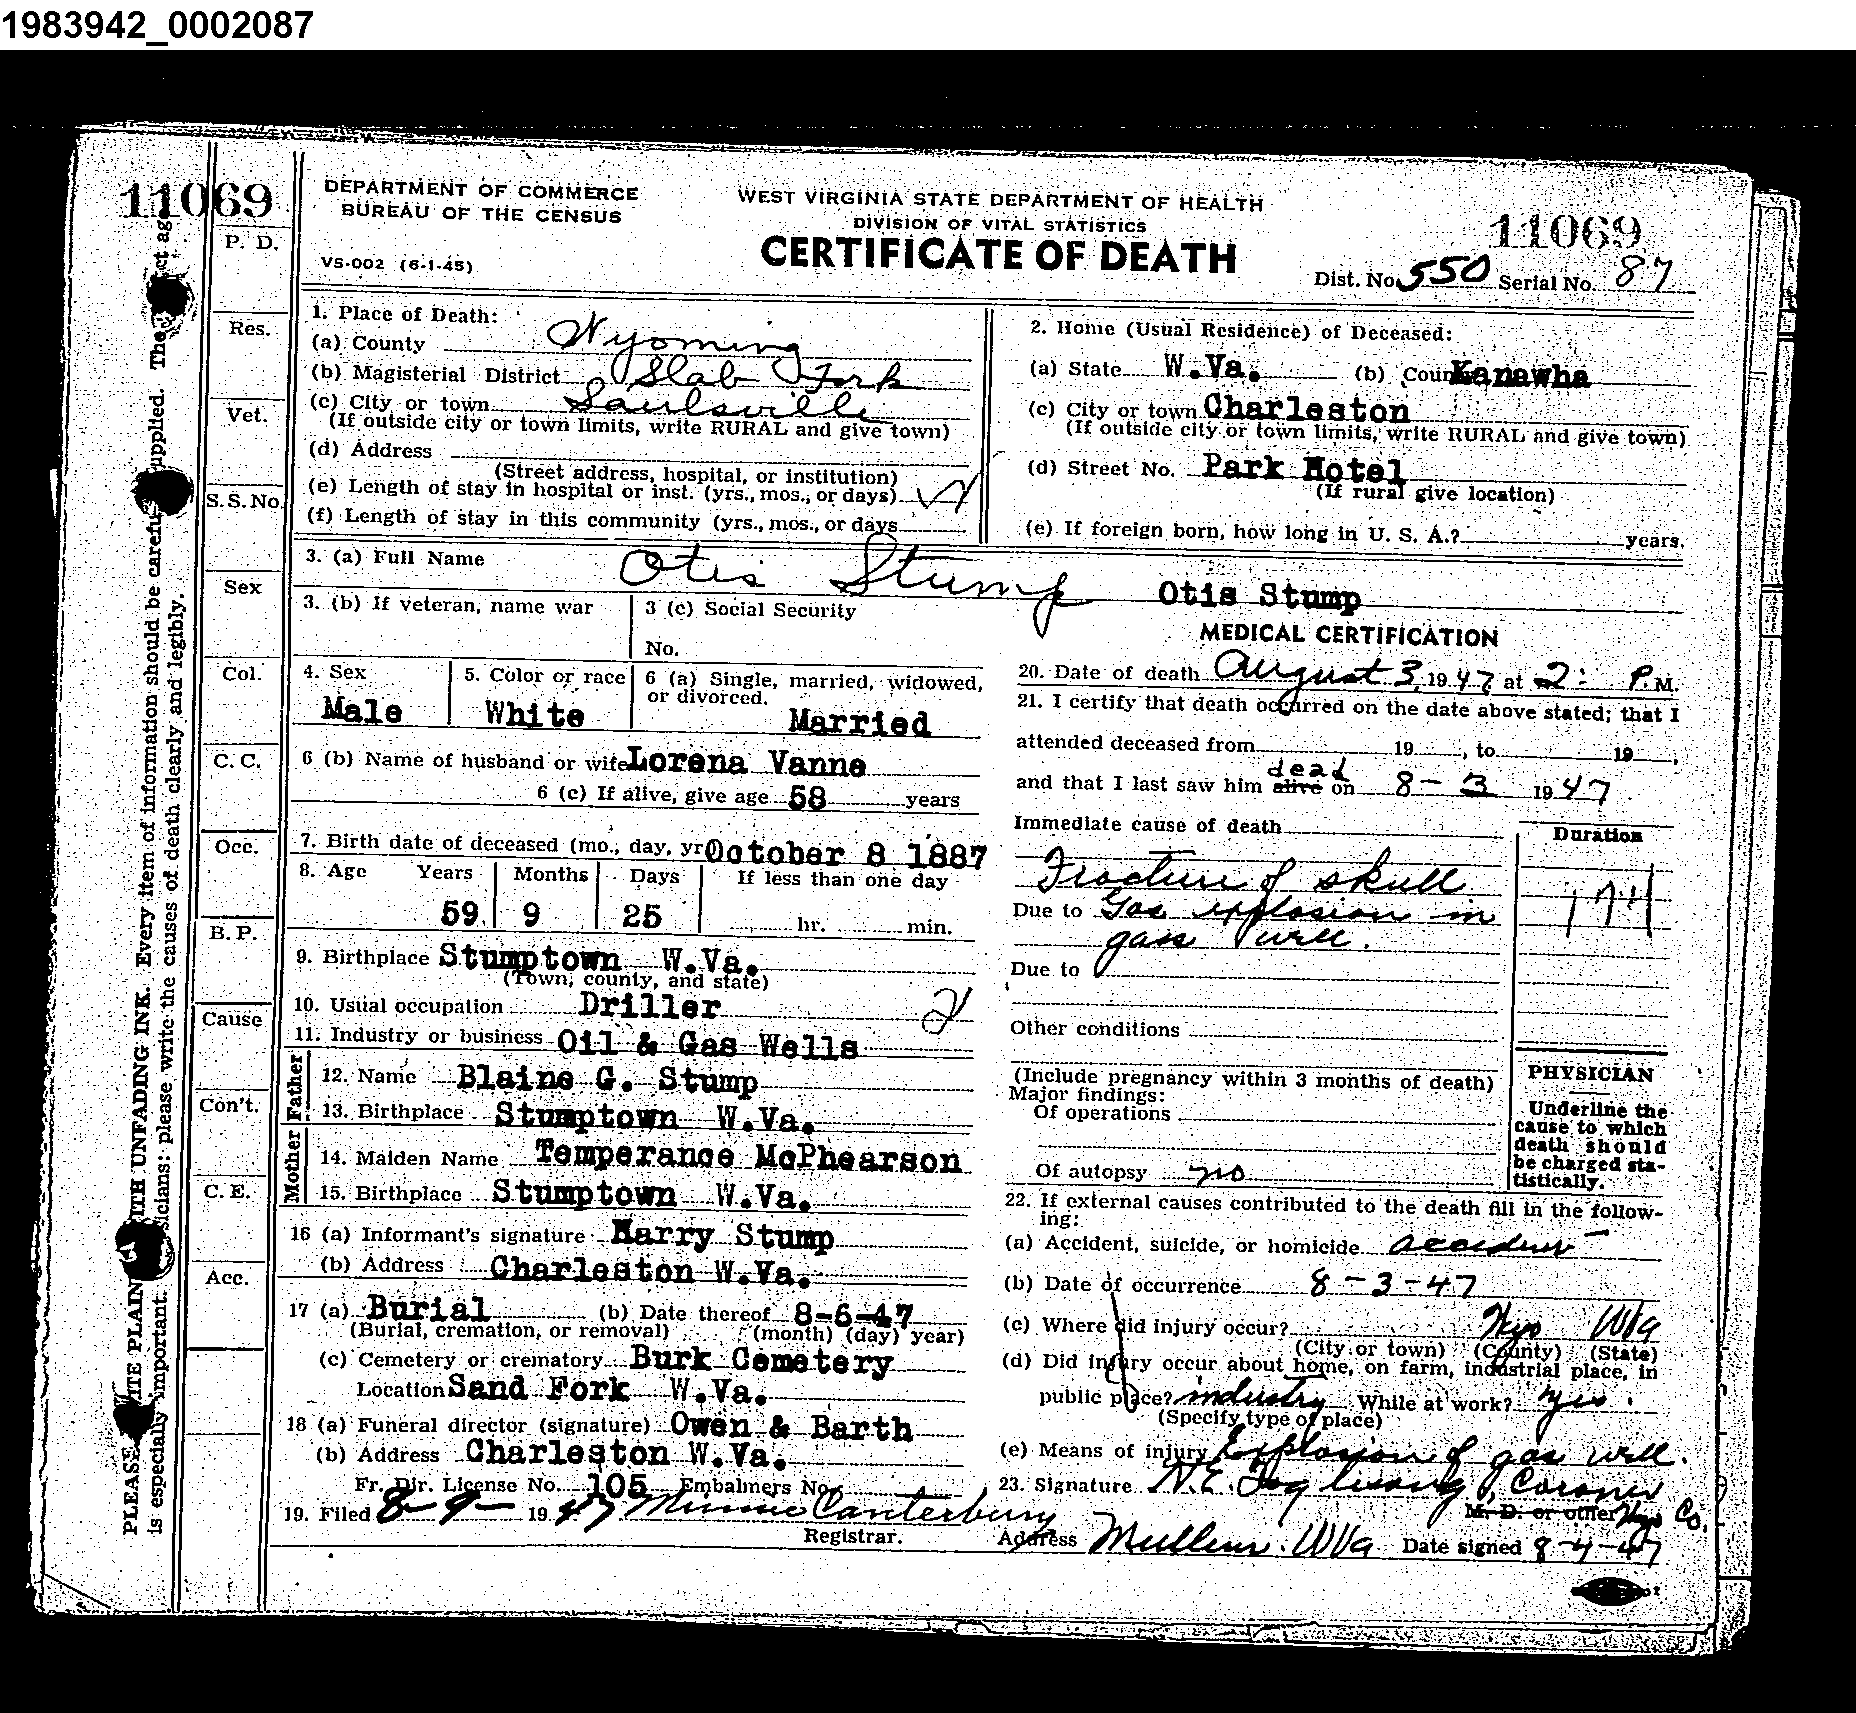 1983942_0002087
11069
DEPARTMENT OF COMMERCE
BUREAU OF THE CENSUS
VS-002 (6-1-45)
WEST VIRGINIA STATE DEPARTMENT OF HEALTH
DIVISION OF VITAL STATISTICS
CERTIFICATE OF DEATH
11069
Dist. No. 550 Serial No. 87
P. D.
Res.
Vet.
S.S. No.
Sex
Col.
C. C.
Occ.
B. P.
Cause
Con't.
C. E.
Acc.
1. Place of Death:
(a) County Wyoming
(b) Magisterial District Slab Fork
(c) City or town Saulsville
(If outside city or town limits, write RURAL and give town)
(d) Address
(Street address, hospital, or institution)
(e) Length of stay in hospital or inst. (yrs., mos., or days)
(f) Length of stay in this community (yrs., mos., or days
2. Home (Usual Residence) of Deceased:
(a) State W.Va. (b) County Kanawha
(c) City or town Charleston
(If outside city or town limits, write RURAL and give town)
(d) Street No. Park Hotel
(If rural give location)
(e) If foreign born, how long in U. S. A.? years.
3. (a) Full Name Otis Stump Otis Stump
3. (b) If veteran, name war
3 (c) Social Security
No.
4. Sex
Male
5. Color or race
White
6 (a) Single, married, widowed,
or divorced.
Married
6 (b) Name of husband or wife Lorena Vanne
6 (c) If alive, give age 58 years
7. Birth date of deceased (mo., day, yr) October 8 1887
8. Age Years Months Days If less than one day
59 9 25 hr. min.
9. Birthplace Stumptown W.Va.
(Town, county, and state)
10. Usual occupation Driller
11. Industry or business Oil & Gas Wells
Father
12. Name Blaine G. Stump
13. Birthplace Stumptown W.Va.
Mother
14. Maiden Name Temperance McPhearson
15. Birthplace Stumptown W.Va.
16 (a) Informant's signature Harry Stump
(b) Address Charleston W.Va.
17 (a) Burial (b) Date thereof 8-6-47
(Burial, cremation, or removal) (month) (day) year)
(c) Cemetery or crematory Burk Cemetery
Location Sand Fork W.Va.
18 (a) Funeral director (signature) Owen & Barth
(b) Address Charleston W.Va.
Fr. Dir. License No. 105 Embalmers No.
19. Filed 8-9- 1947 Minnie Canterbury
Registrar.
MEDICAL CERTIFICATION
20. Date of death August 3, 1947 at 2: P.M.
21. I certify that death occurred on the date above stated; that I
attended deceased from 19 , to 19 ,
dead
and that I last saw him alive on 8-3 1947
Immediate cause of death
Duration
Fracture of skull
Due to Gas explosion in
gass well.
Due to
Other conditions
(Include pregnancy within 3 months of death)
Major findings:
Of operations
Of autopsy no
PHYSICIAN
Underline the
cause to which
death should
be charged sta-
tistically.
22. If external causes contributed to the death fill in the follow-
ing:
(a) Accident, suicide, or homicide accident
(b) Date of occurrence 8-3-47
(c) Where did injury occur? Wyo WVa
(City or town) (County) (State)
(d) Did injury occur about home, on farm, industrial place, in
public place? industry While at work? yes.
(Specify type of place)
(e) Means of injury Explosion of gas well.
23. Signature N.E. Coroner
M. D. or other Wyo Co.
Address Mullens. WVa Date signed 8-4-47